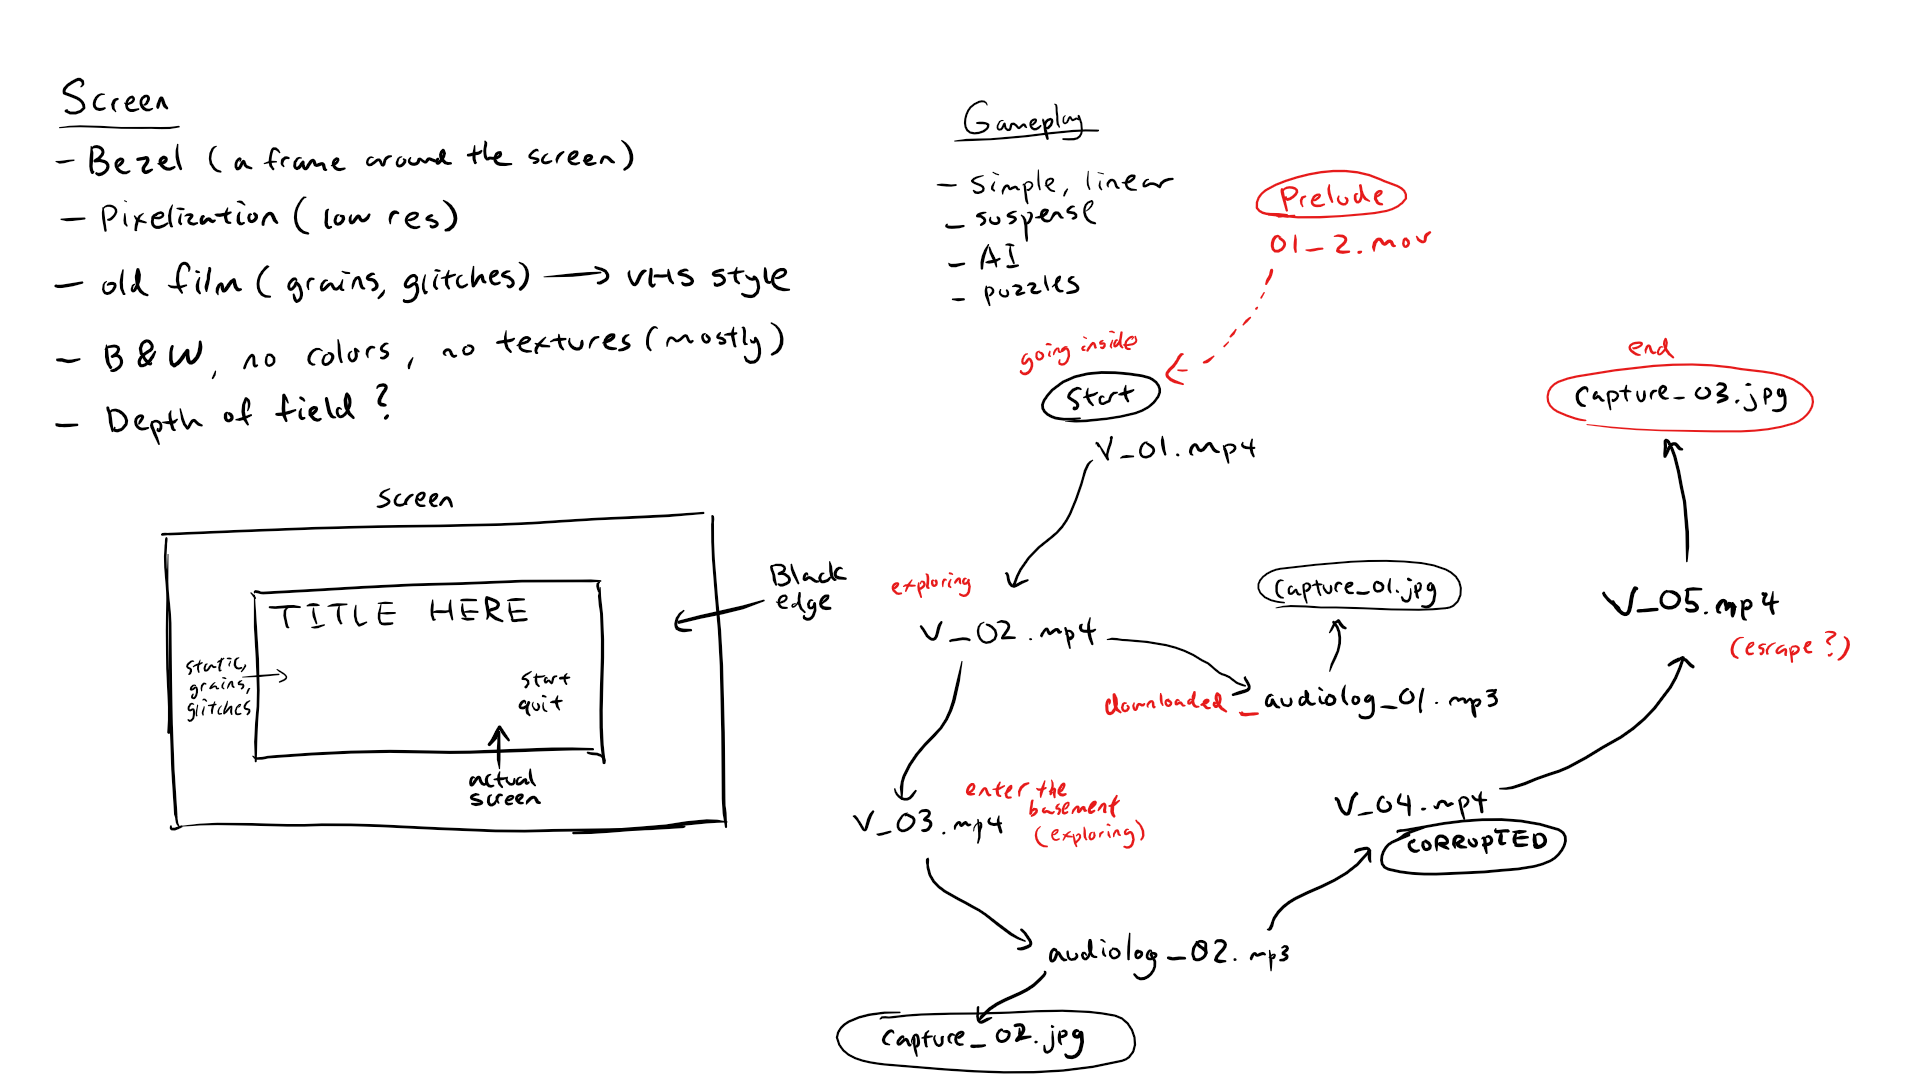 Screen
- Bezel (a frame around the screen)
- Pixelization (low res)
- old film (grains, glitches) → VHS style
- B & W, no colors, no textures (mostly)
- Depth of field?
screen
TITLE HERE
static,
grains,
glitches
start
quit
actual
screen
Black
edge
Gameplay
- simple, linear
- suspense
- AI
- puzzles
Prelude
01_2.mov
going inside
Start
V_01.mp4
exploring
V_02.mp4
Capture_01.jpg
downloaded_audiolog_01.mp3
V_03.mp4
enter the
basement
(exploring)
audiolog_02.mp3
Capture_02.jpg
V_04.mp4
CORRUPTED
V_05.mp4
(escape?)
end
Capture_03.jpg